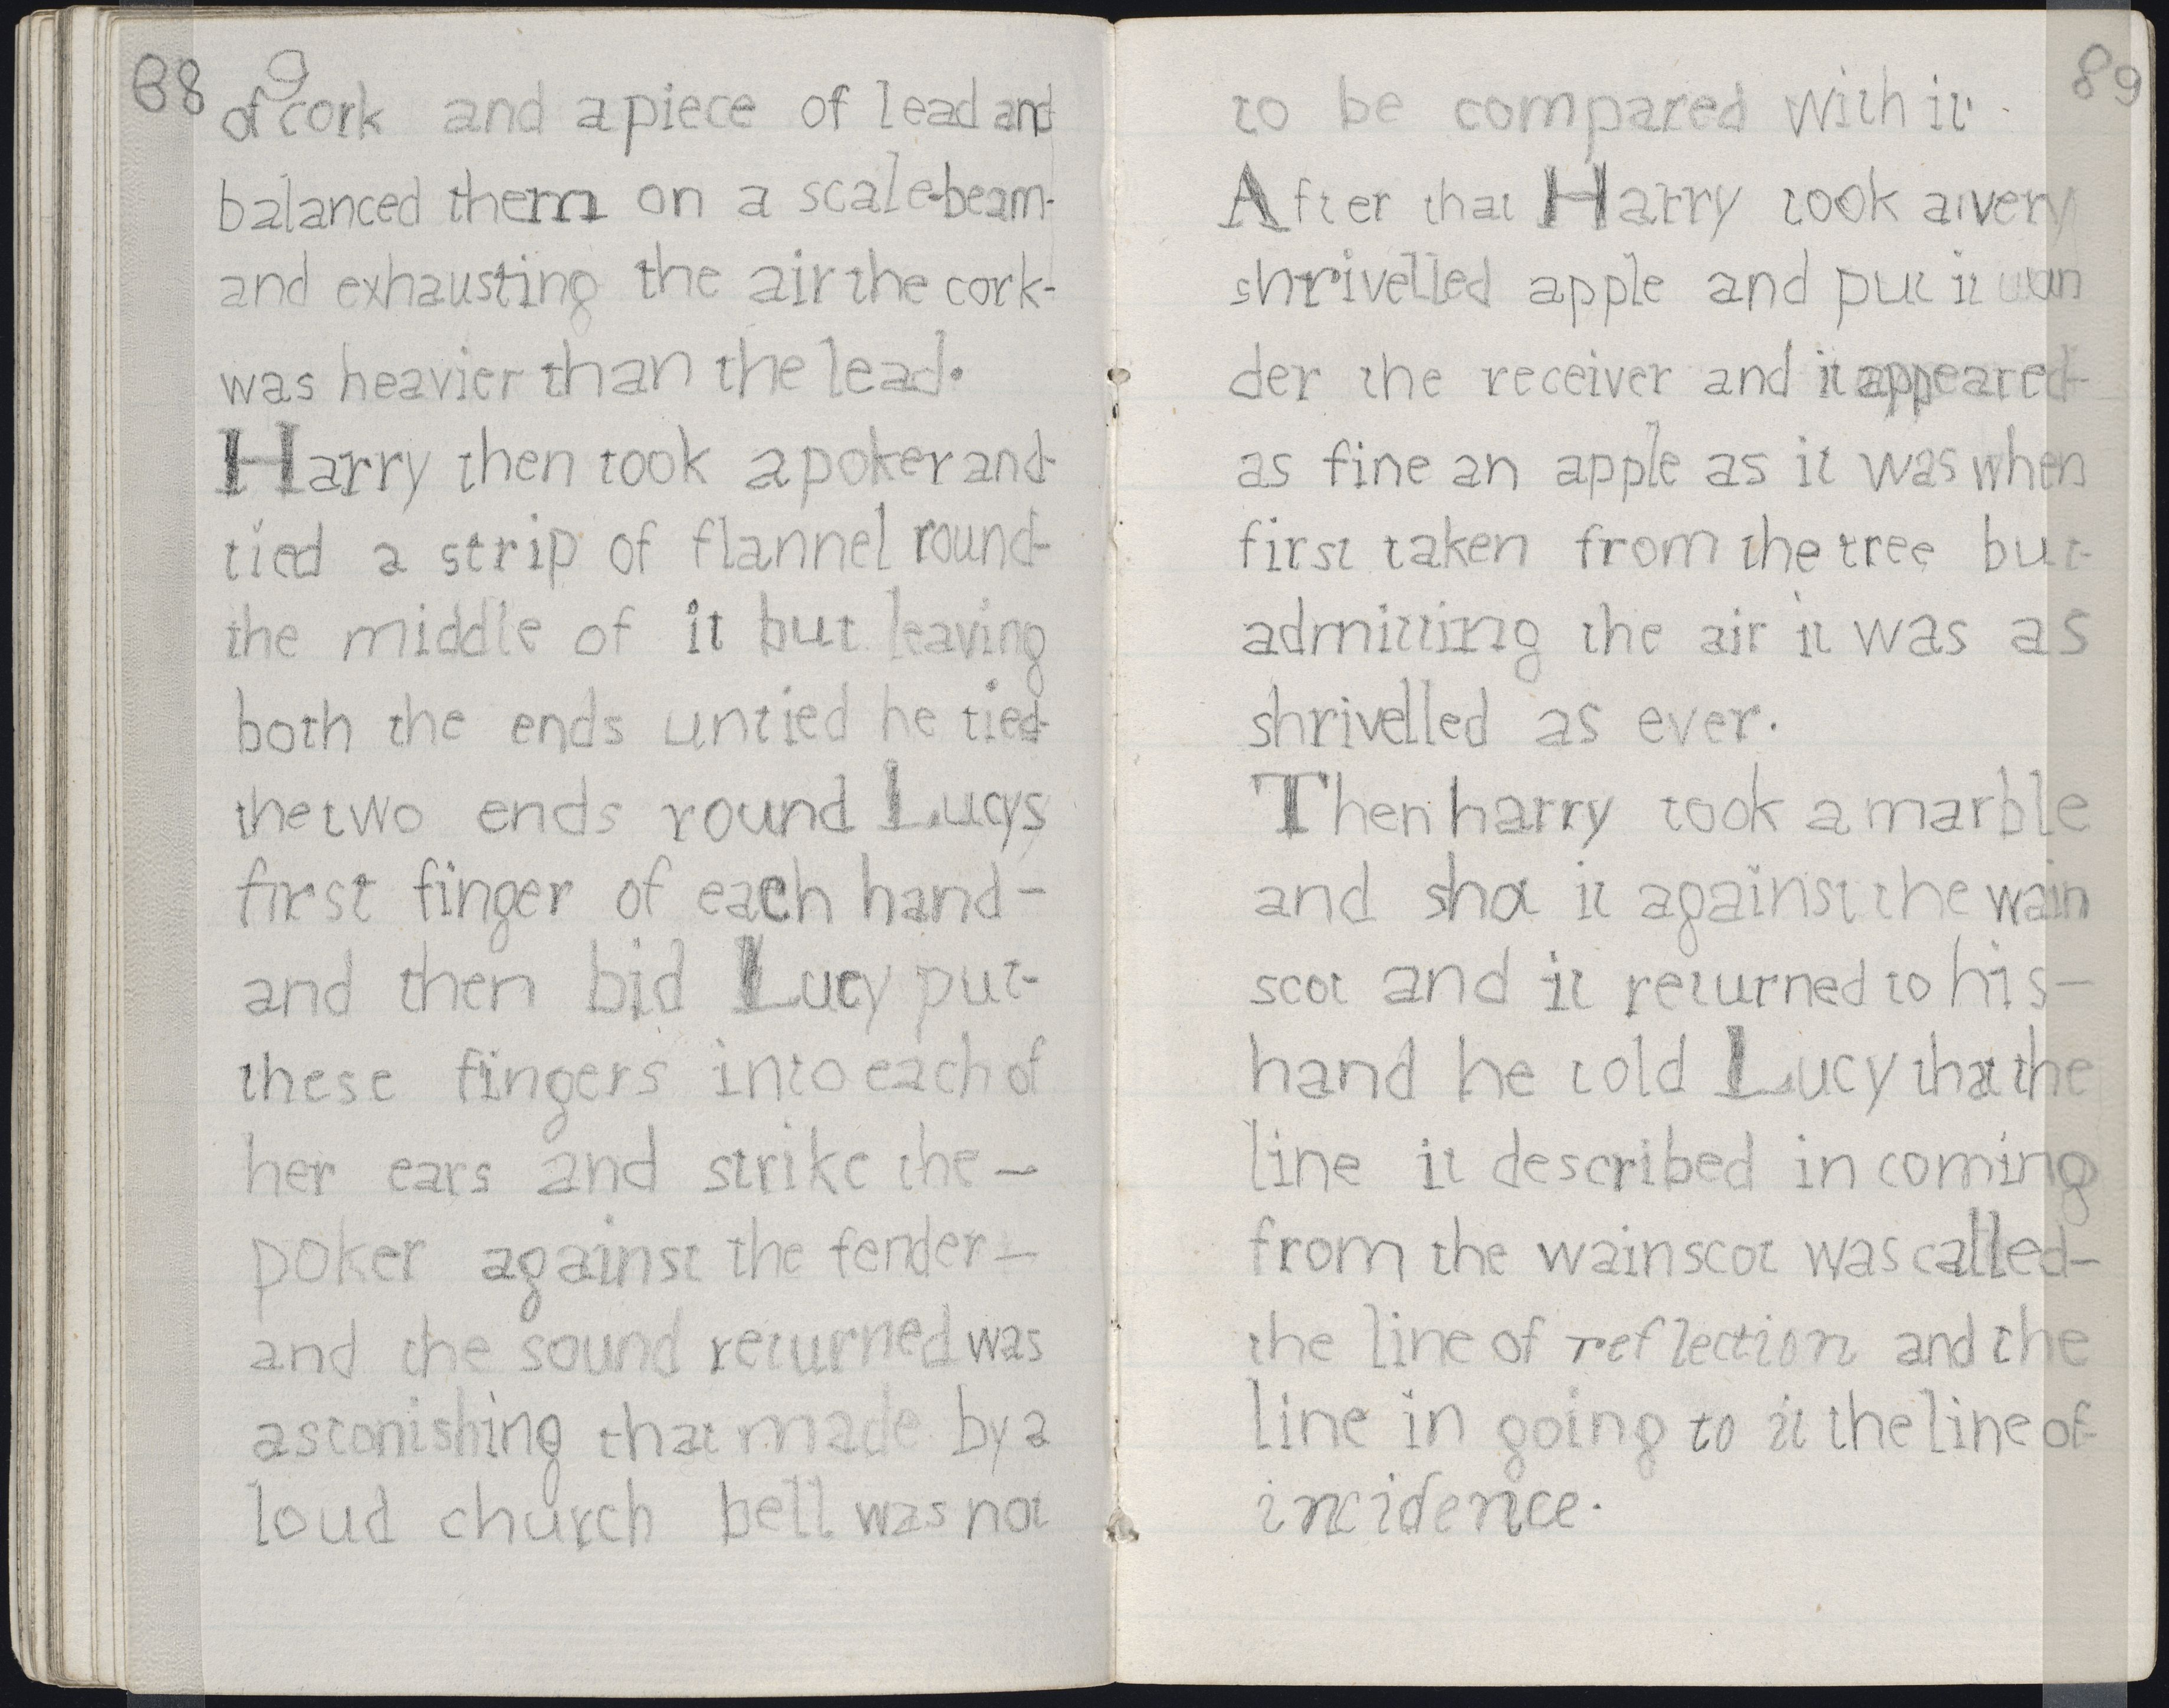 88
of cork and a piece of lead and
balanced them on a scale-beam-
and exhausting the air the cork-
was heavier than the lead.
Harry then took a poker and-
tied a strip of flannel round-
the middle of it but leaving
both the ends untied he tied-
the two ends round Lucys
first finger of each hand-
and then bid Lucy put-
these fingers into each of
her ears and strike the-
poker against the fender-
and the sound returned was
astonishing that made by a
loud church bell was not
89
to be compared with it.
After that Harry took a very
shrivelled apple and put it un
der the receiver and it appeared-
as fine an apple as it was when
first taken from the tree but-
admitting the air it was as
shrivelled as ever.
Then harry took a marble
and shot it against the wain
scot and it returned to his-
hand he told Lucy that the
line it described in coming
from the wainscot was called-
the line of reflection and the
line in going to it the line of-
incidence.